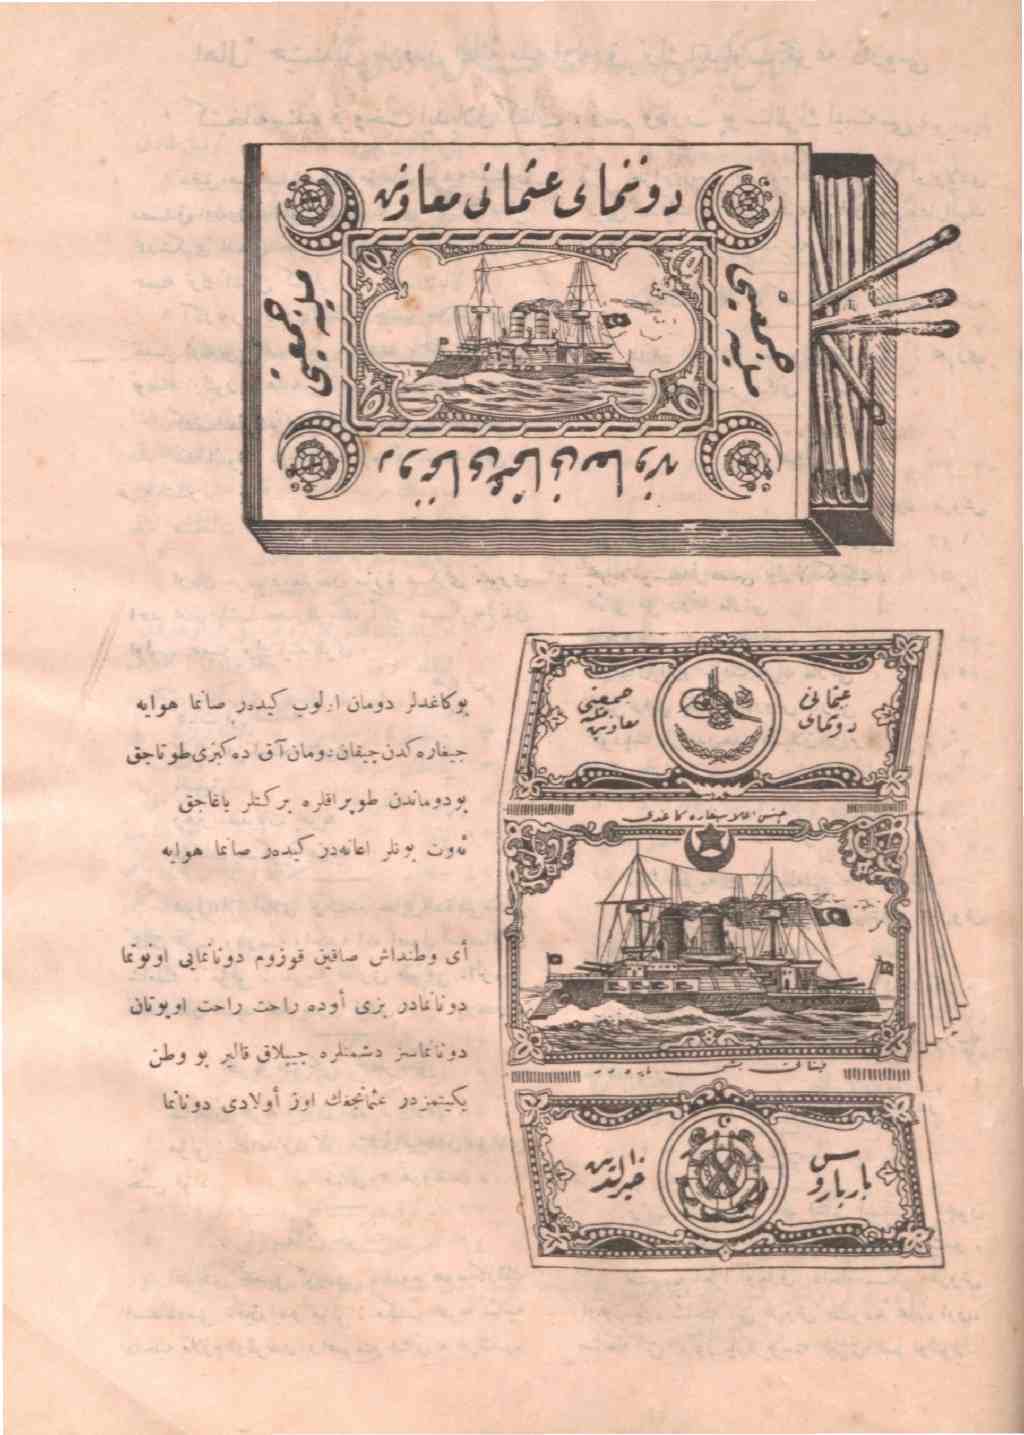 دونمای عثمانی معاونت
ملیه جمعیتی
ملیه جمعیتی
دونمای عثمانی معاونت
عثمانی
دونمای
معاونت
ملیه
جمعیتی
جنس اعلا سیغاره کاغدی
فیئاتی بش پاره در
بارباروس
خیرالدین
بوکاغدلر دومان اولوب کیدەر صانما هوایه
جیغاره کدن چیقان دومان آق ده کزی طوتاجق
بودوماندن طوپراقلره برکتلر یاغاجق
ئەوت بونلر اعانەدر کیدەر صانما هوایه
أی وطنداش صاقین قوزوم دونانمایی اونوتما
دونانمادر بزی أوده راحت راحت اویوتان
دونانماسز دشمنلره چیپلاق قالیر بو وطن
یکیتمزدر عثمانجغك اوز أولادی دونانما